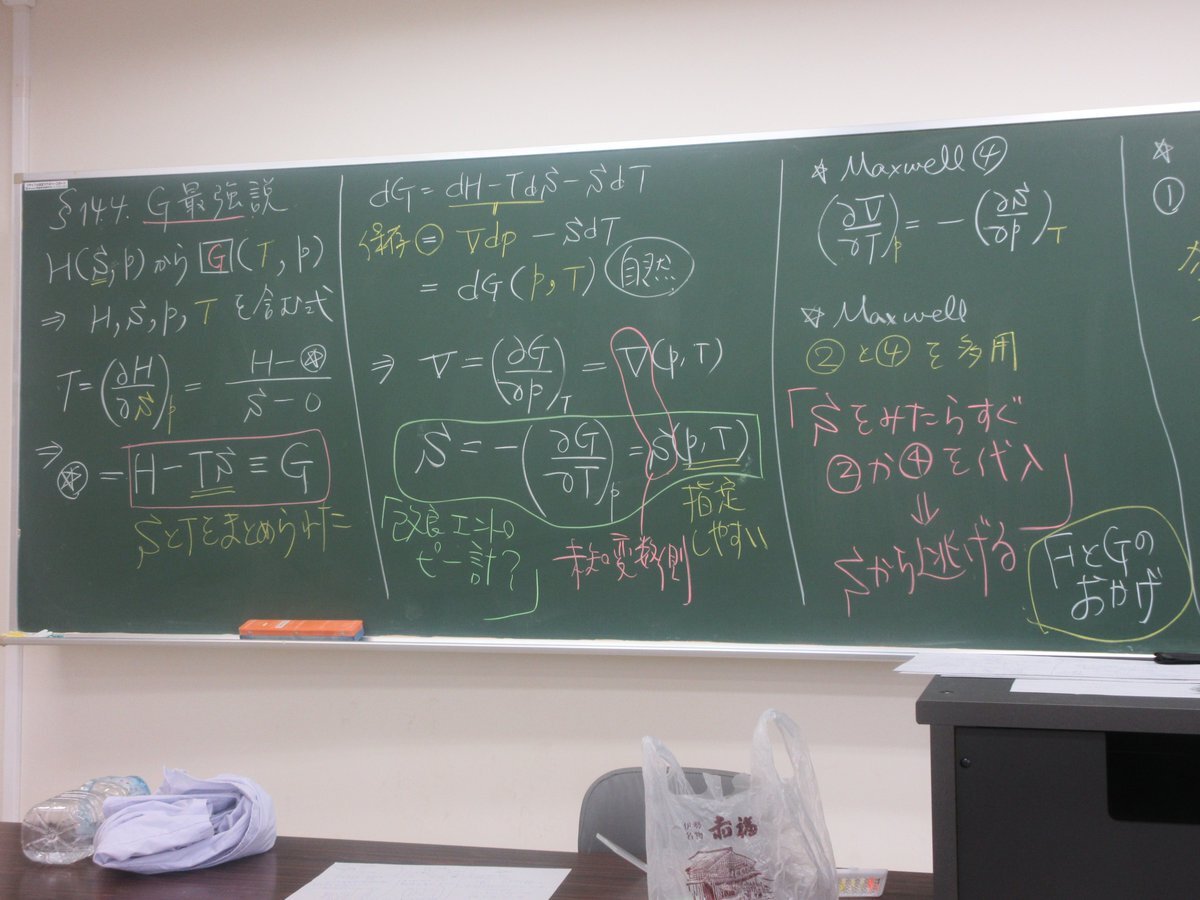 §14.4. G最強説
H(S,p)から G (T,p)
⇒ H,S,p,T を含む式
T=(∂H/∂S)p = (H-☆)/(S-0)
⇒ ☆ = H-TS≡G
SとTをまとめられた
dG = dH-TdS-SdT
保存 = Vdp - SdT
= dG(p,T) 自然
⇒ V = (∂G/∂p)T = V(p,T)
S = -(∂G/∂T)p = S(p,T)
指定
しやすい
「改良エントロ
ピー計?」
未知変数側
☆ Maxwell ④
(∂V/∂T)p = -(∂S/∂p)T
☆ Maxwell
②と④を多用
「Sをみたらすぐ
②か④を代入」
⇓
Sから逃げる
「HとGの
おかげ
☆
①
伊勢
名物
赤福